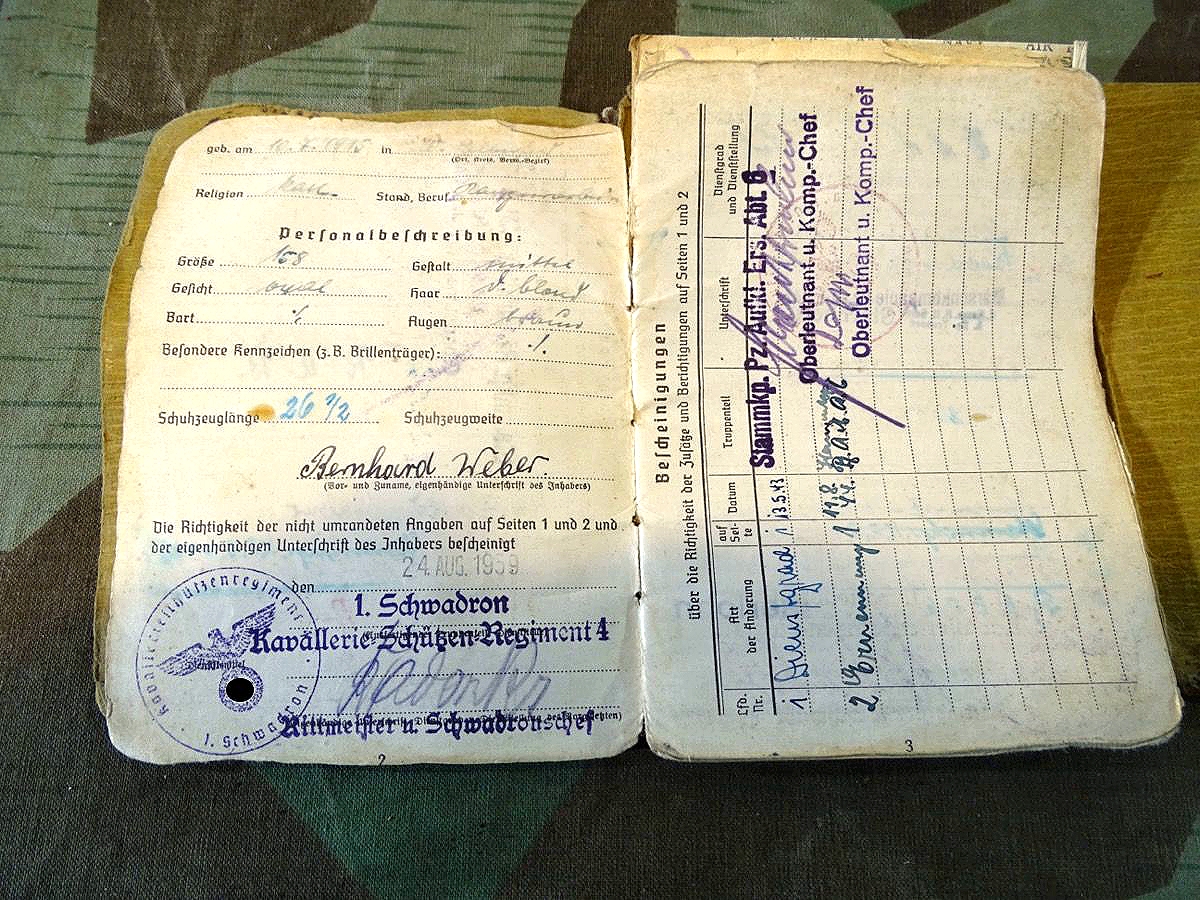 geb. am in
(Ort, Kreis, Verw.-Bezirk)
Religion Stand, Beruf
Personalbeschreibung:
Größe 168 Gestalt mittel
Gesicht oval Haar d. blond
Bart ./. Augen braun
Besondere Kennzeichen (z.B. Brillenträger): ./.
Schuhzeuglänge 26 1/2 Schuhzeugweite
Bernhard Weber.
(Vor- und Zuname, eigenhändige Unterschrift des Inhabers)
Die Richtigkeit der nicht umrandeten Angaben auf Seiten 1 und 2 und
der eigenhändigen Unterschrift des Inhabers bescheinigt
den 24. AUG. 1939
1. Schwadron
Kavallerie-Schützen-Regiment 4
Rittmeister u. Schwadronschef
Kavallerieschützenregiment
1. Schwadron
Dienststempel
2
AIR
Bescheinigungen
über die Richtigkeit der Zusätze und Berichtigungen auf Seiten 1 und 2
Lfd. Nr. Art der Änderung auf Seite Datum Truppenteil Unterschrift Dienstgrad und Dienststellung
1 Dienstgrad 1 13.5.43 Stammkp. Pz. Aufkl. Ers. Abt. 6
Oberleutnant u. Komp.-Chef
2 Ernennung 1
Oberleutnant u. Komp.-Chef
3